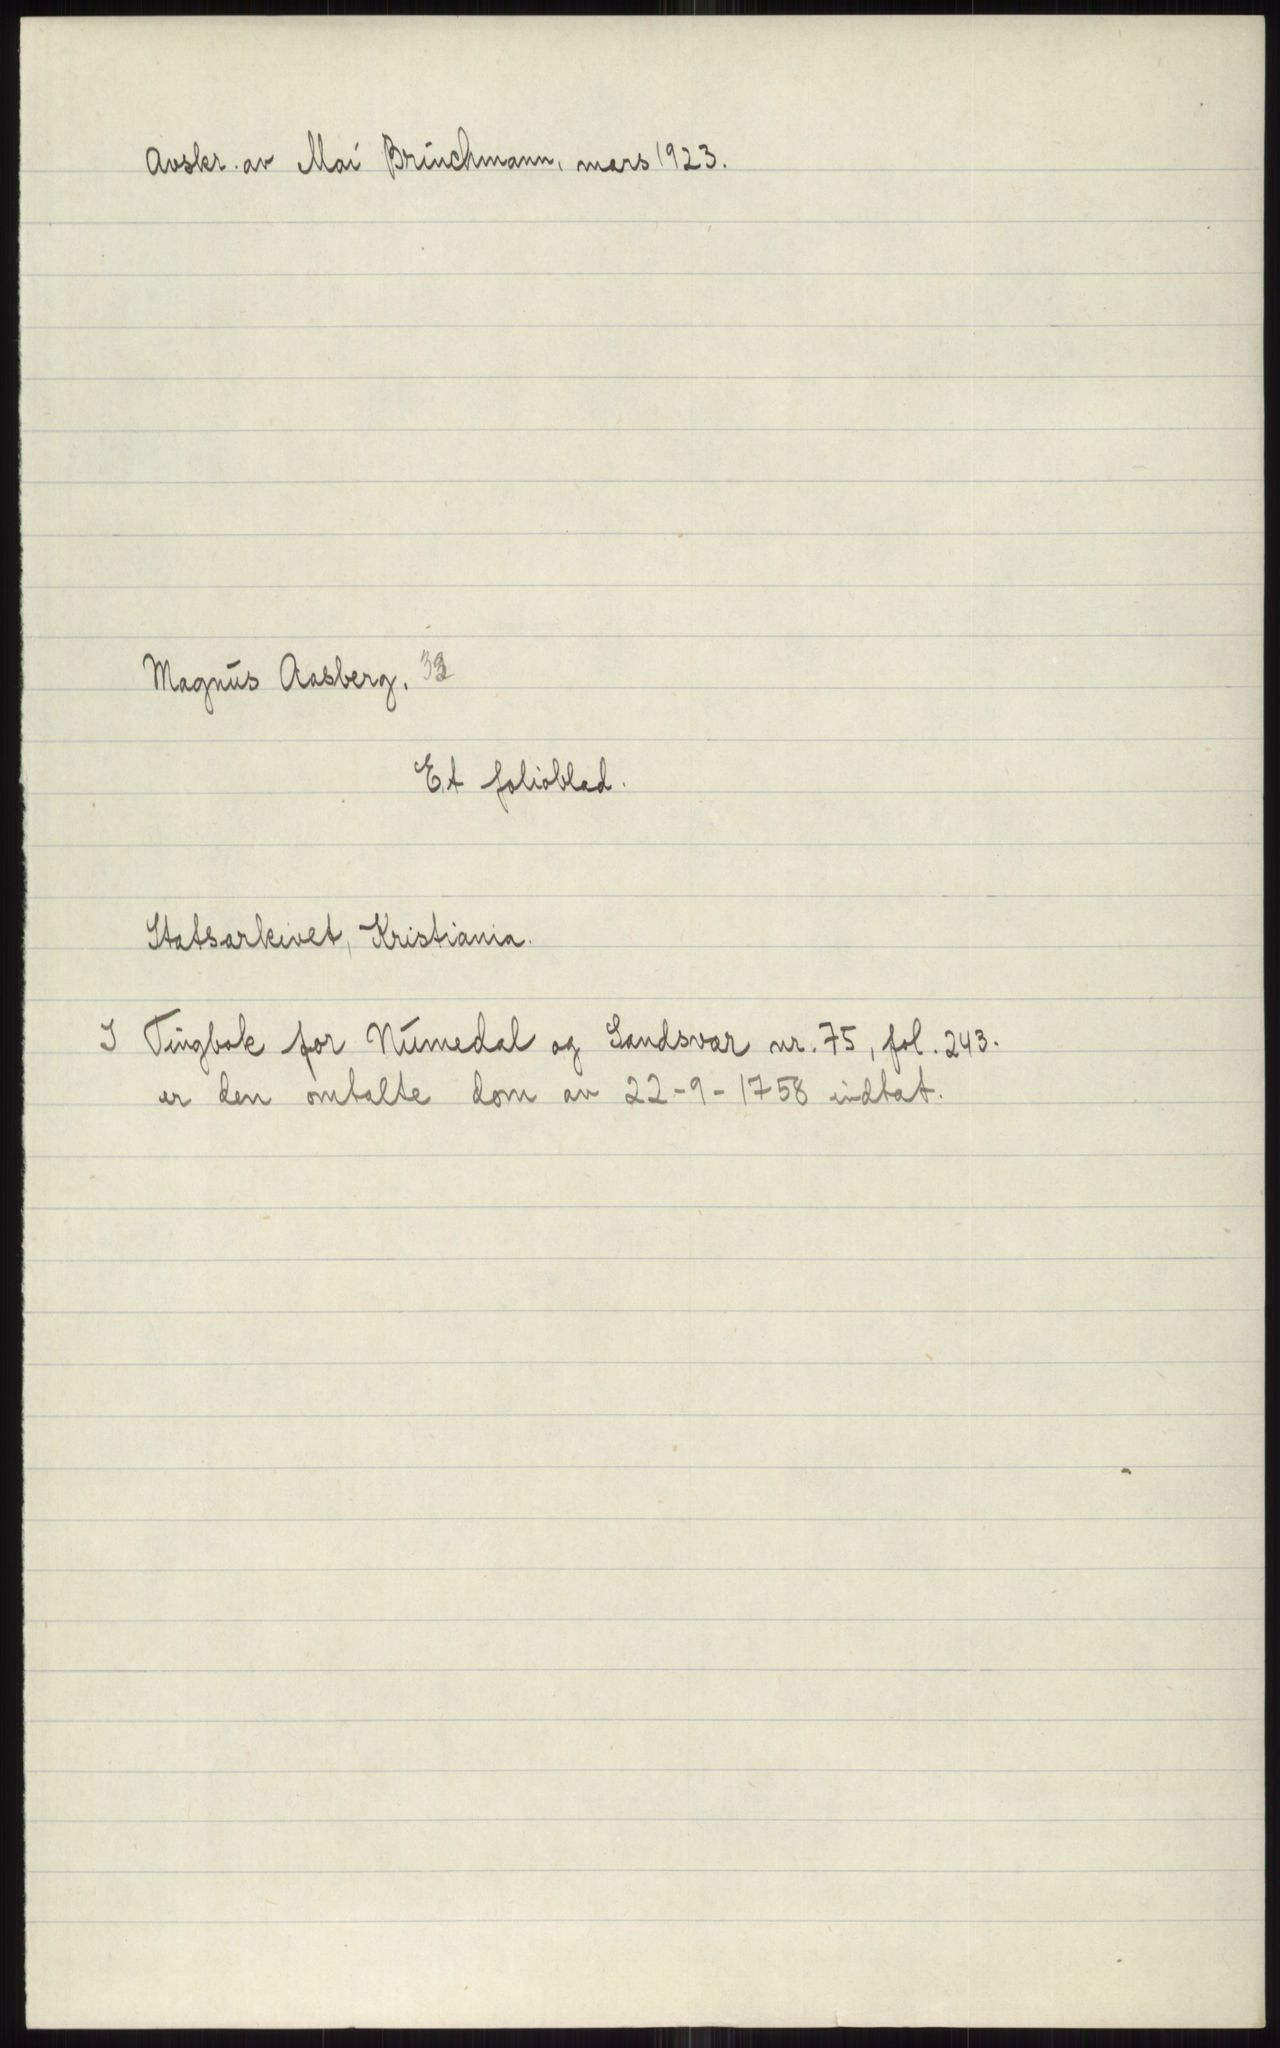 Avskr. av Mai Brunchmann, mars 1923.
Magnus Aasberg.
Et folioblad.
Statsarkivet, Kristiania.
I Tingbok for Numedal og Sandsvær nr. 75, fol. 243.
er den omtalte dom av 22-9-1758 indtat.